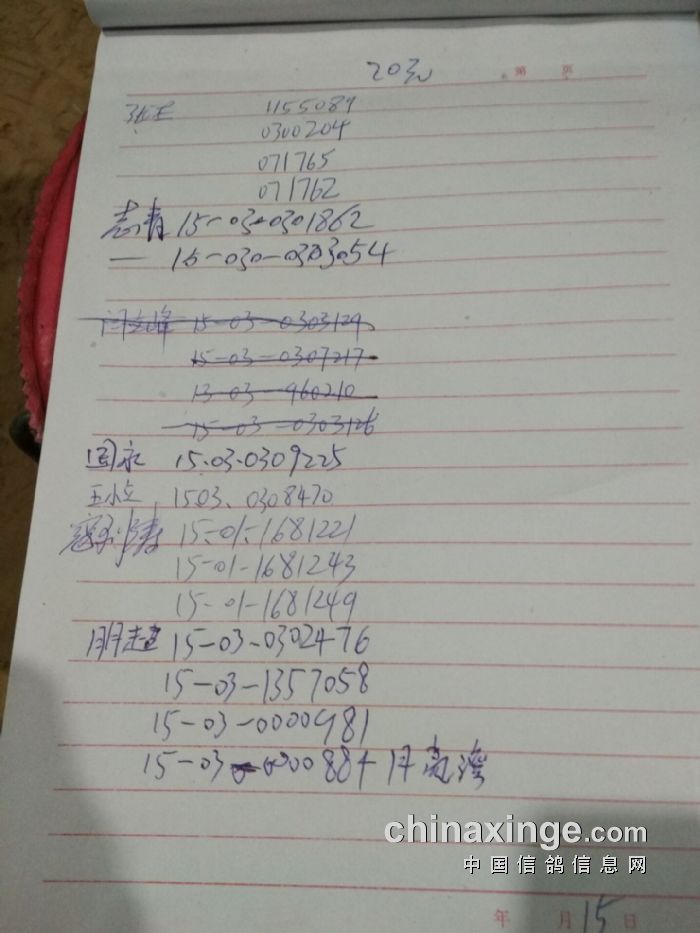 203
第 页
1155089
0300204
071765
071762
志清 15-03-0301862
— 15-030-0303054
15-03-0303129
15-03-0307217
13-03-960210
15-03-0303126
国永 15.03.0309225
1503.0308470
15-01-1681221
15-01-1681243
15-01-1681249
朋起 15-03-0302476
15-03-1357058
15-03-0000981
15-03-000088
chinaxinge.com
中国信鸽信息网
年 月15日